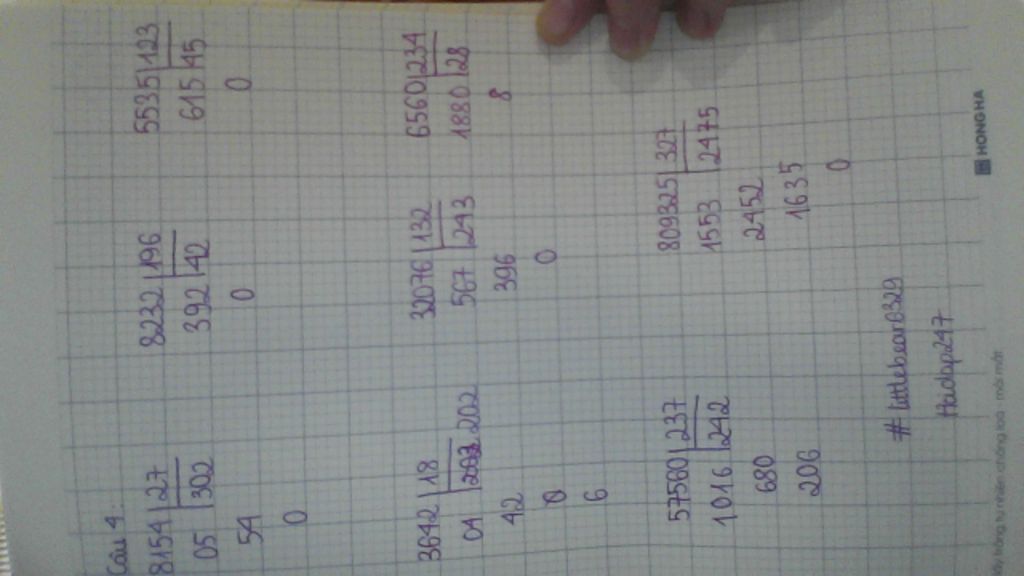 Câu 4:
8154 27
05 302
54
0
8232 196
392 42
0
5535 123
615 45
0
3642 18
04 202
42
6
32076 132
567 243
396
0
6560 234
1880 28
8
57560 237
1016 242
680
206
809325 327
1553 2475
2452
1635
0
#littlebear0329
Hadap247
HONG HA